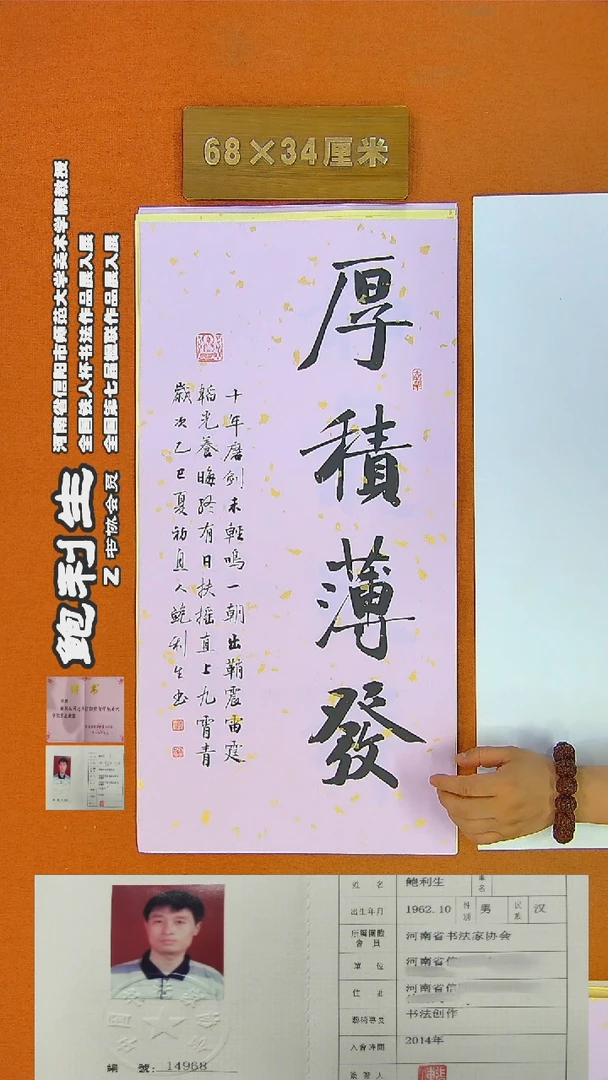 68×34厘米
厚積薄發
十年磨剑未輕鳴一朝出鞘震雷霆
韜光養晦終有日扶摇直上九霄青
歲次乙巳夏初直人鲍利生书
河南省信阳市师范大学美术学院教授
全国铁人杯书法作品展入展
全国第七届楹联作品展入展
鲍利生
Z书协会员
姓 名 鲍利生
出生年月 1962.10 性别 男 民族 汉
所屬團體會員 河南省书法家协会
單 位 河南省信
住 址 河南省信
藝術專長 书法创作
入會時間 2014年
簽署人
編 號: 14968